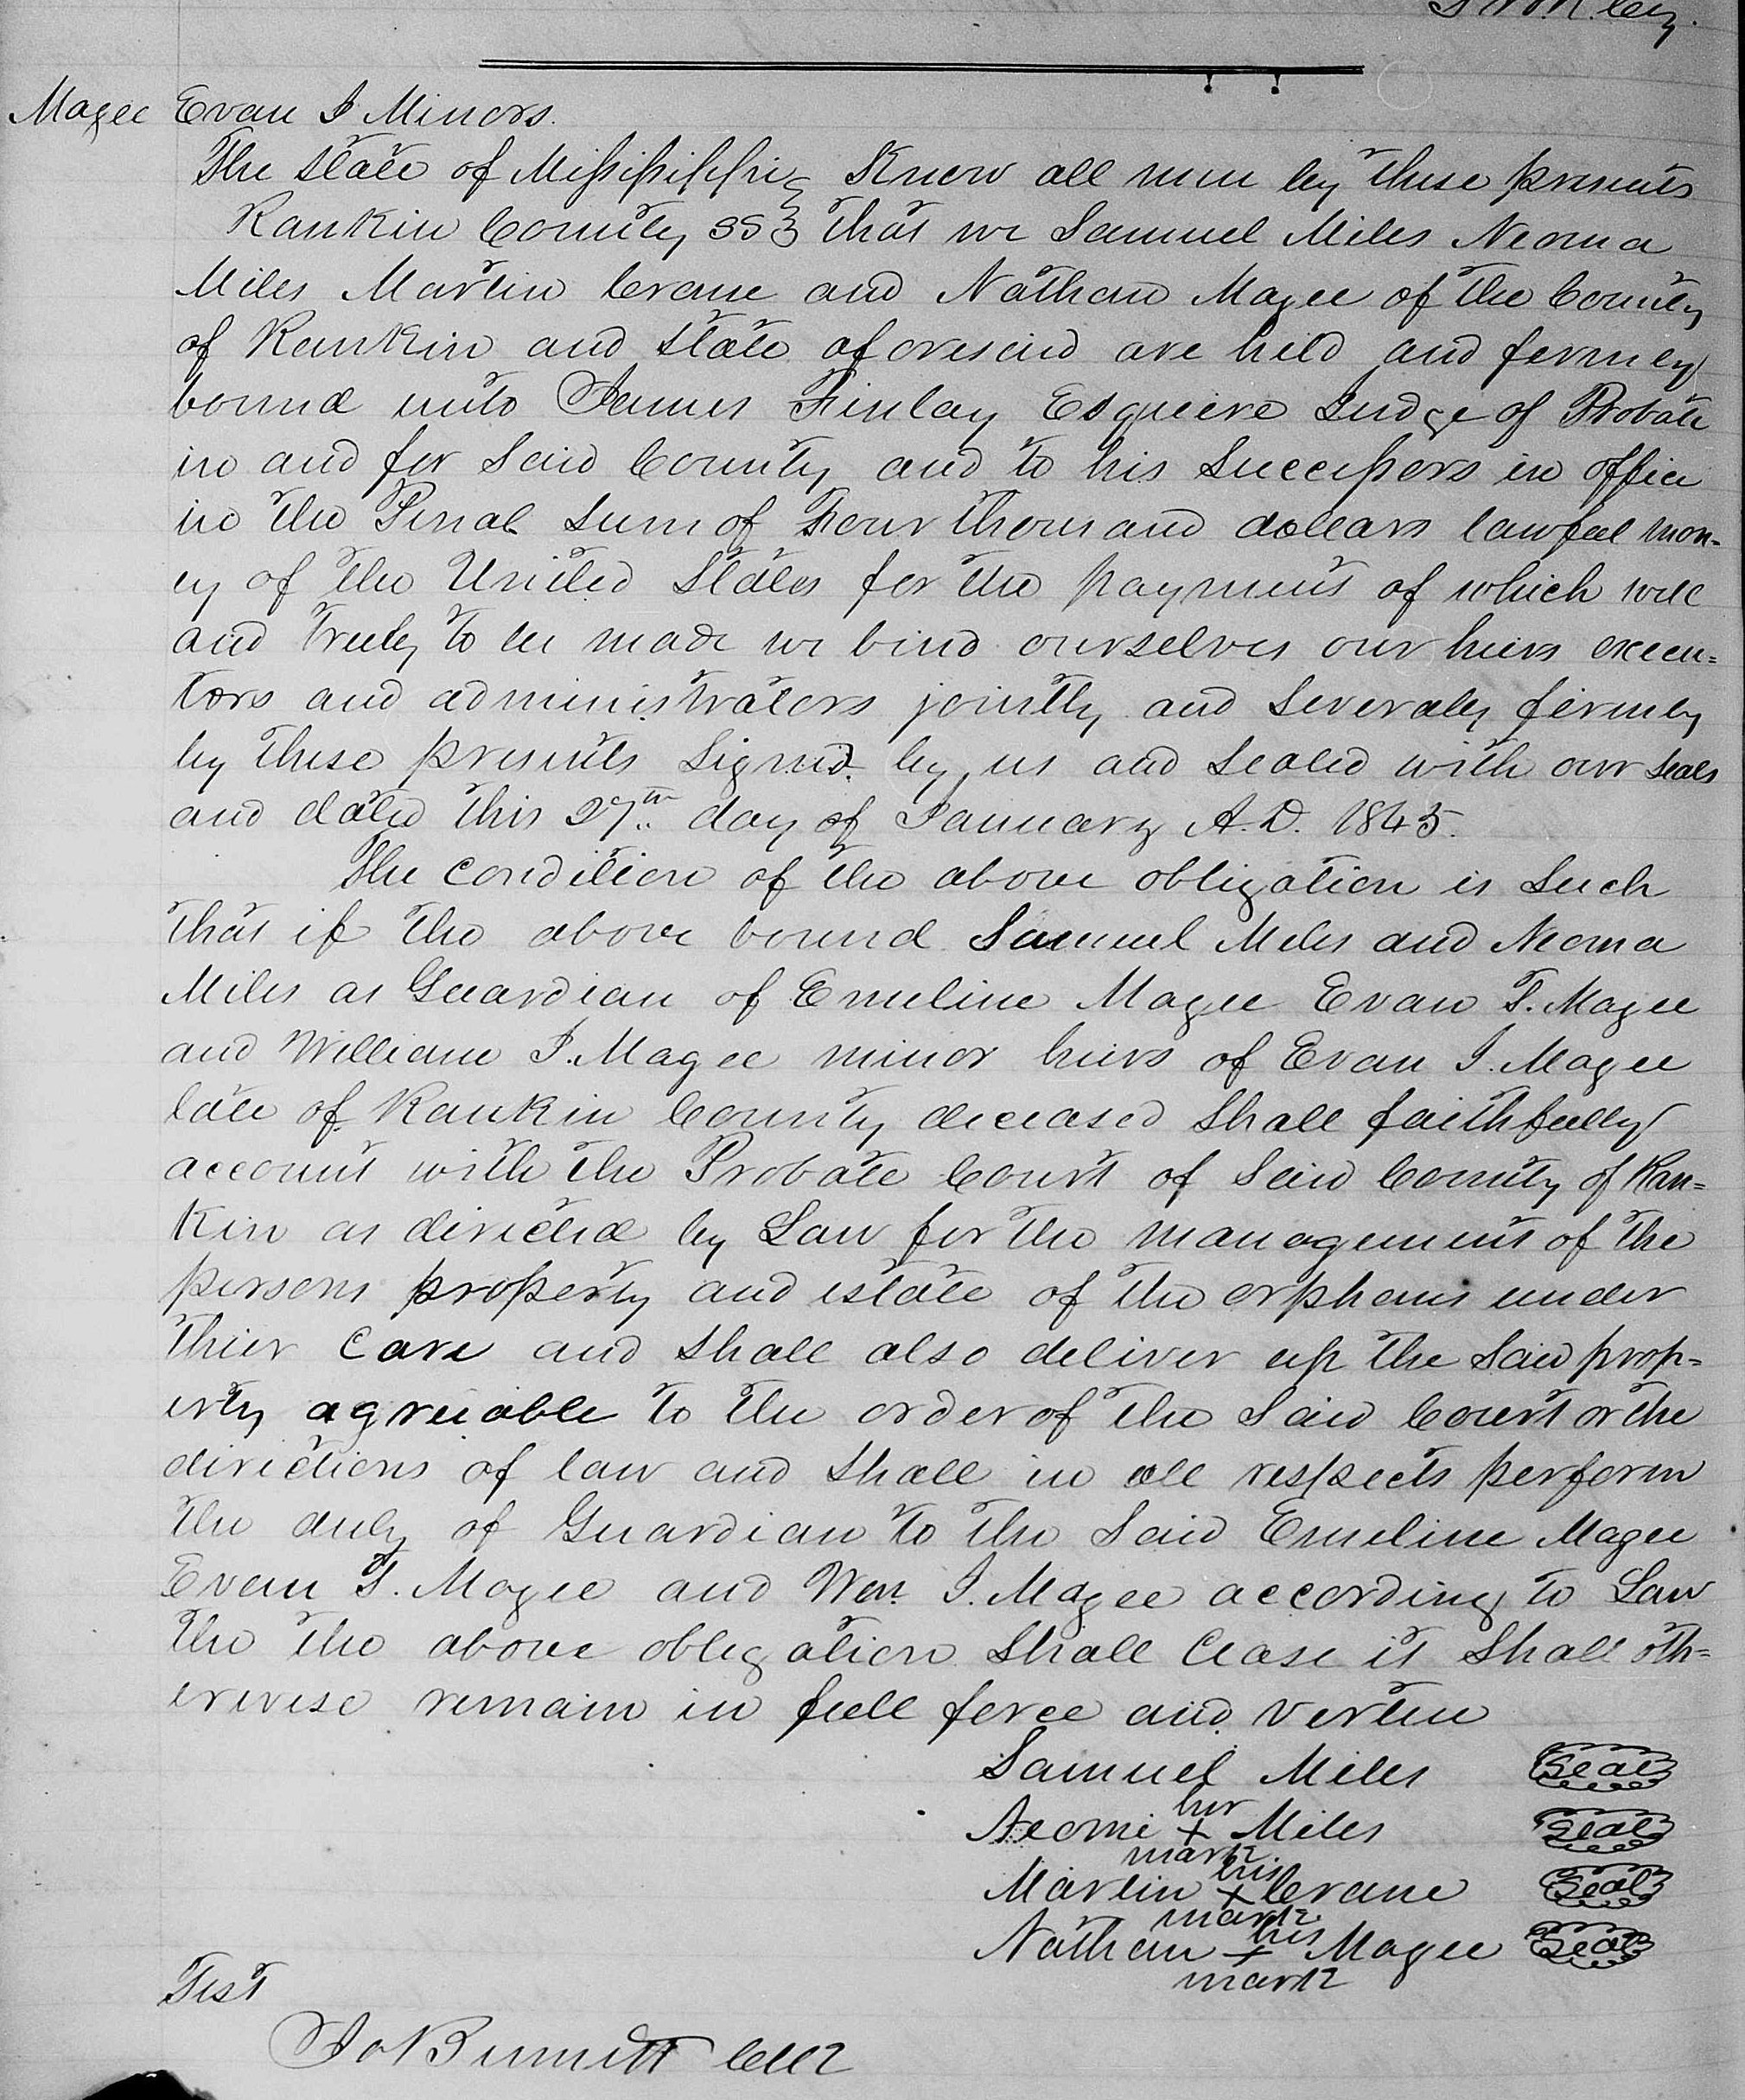 Magee Evan J Minors.
The State of Mississippi } Know all men by these presents
Rankin County SS } that we Samuel Miles Neoma
Miles Martin Crane and Nathan Magee of the County
of Rankin and State aforesaid are held and fermly
bound unto James Finlay Esqueire Judge of Probate
in and for Said County and to his Successors in office
in the Penal Sum of Four thousand dollars lawful mon-
ey of the United States for the payment of which well
and truly to be made we bind ourselves our heirs execu=
tors and administrators jointly and Severaly firmly
by these presents Signed by us and Sealed with our Seals
and dated this 27th day of January A.D. 1845.
The condition of the above obligation is Such
that if the above bound Samuel Miles and Neoma
Miles as Guardian of Emeline Magee Evan T. Magee
and William J. Magee minor heirs of Evan J. Magee
late of Rankin County deceased Shall faithfully
account with the Probate Court of Said County of Ran=
kin as directed by Law for the management of the
persons property and estate of the orphans under
thier Care and Shall also deliver up the Said prop=
erty agreeable to the order of the Said Court or the
directions of law and Shall in all respects perform
the duty of Guardian to the Said Emeline Magee
Evan T. Magee and Wm. J. Magee according to Law
the the above obligation Shall Cease it Shall oth=
erwise remain in full force and vertue
Samuel Miles Seal
her
Neomi + Miles Seal
mark
his
Martin + Crane Seal
mark
his
Nathan + Magee Seal
mark
Test
Burnett Clk